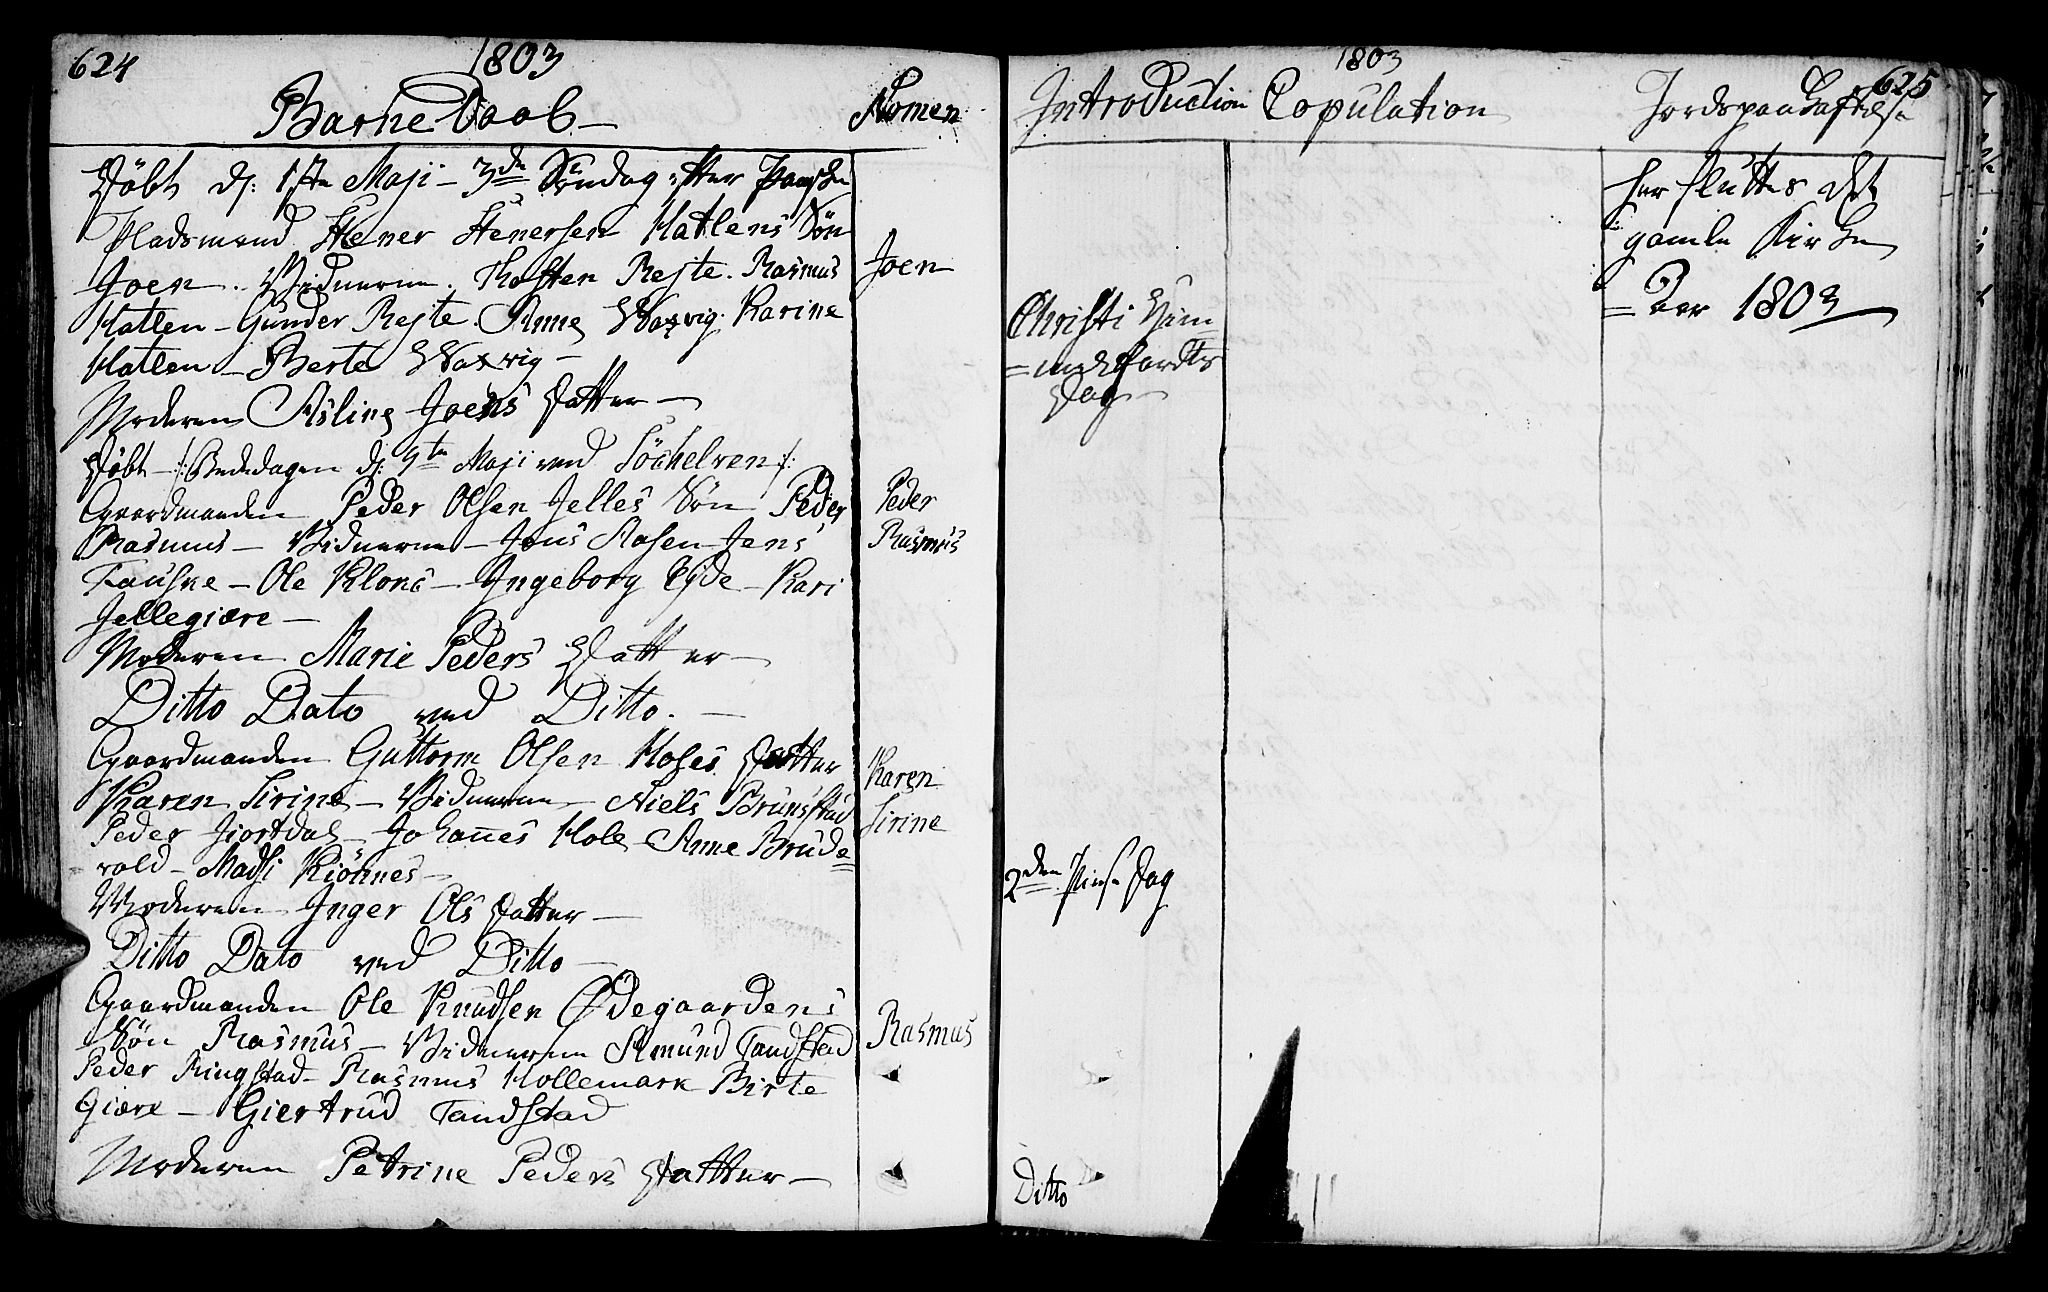 624
1803
Barne Daab
Nomen
Døbt d: 1ste Maji - 3de Søndag efter Paaske
Pladsmand Stener Stenersen Hatlens Søn
Joen. Vidnerne. Thosten Rejte. Rasmus
Hatlen - Gunder Rejte. Anne Waxvig. Karine
Hatlen - Berte Waxvig -
Moderen Asline Joens Datter -
Joen
Døbt - /: Bededagen d: Maji ved Söchelven :/
Gaardmanden Peder Olsen Jelles Søn Peder
Rasmus - Vidnerne - Jens
Fauske - Ole Klons - Ingeborg Eyde - Kari
Jellegiære -
Moderen Marie Peders Datter -
Peder
Rasmus
Ditto Dato ved Ditto. -
Gaardmanden Guttorm Olsen Hoses Datter
Karen Sirine - Vidnerne - Niels Brunstad
Peder Hiortdal - Johannes Hole - Anne Brude=
vold - Madsi Kiönnes -
Moderen Inger Ols Datter -
Karen
Sirine
Ditto Dato ved Ditto -
Gaardmanden Ole Knudsen Ødegaardens
Søn Rasmus - Vidnerne Amund Tandstad
Peder Ringstad - Rasmus Hollemark Birte
Giære - Giertrud Tandstad
Moderen Petrine Peders Datter -
Rasmus
1803
625
Introduction
Copulation
Jordspaakastelse
Christi Him
=melfardts
Dag -
2den Pinse Dag
Ditto
her sluttes det
gamle Kirke
= Aar 1803